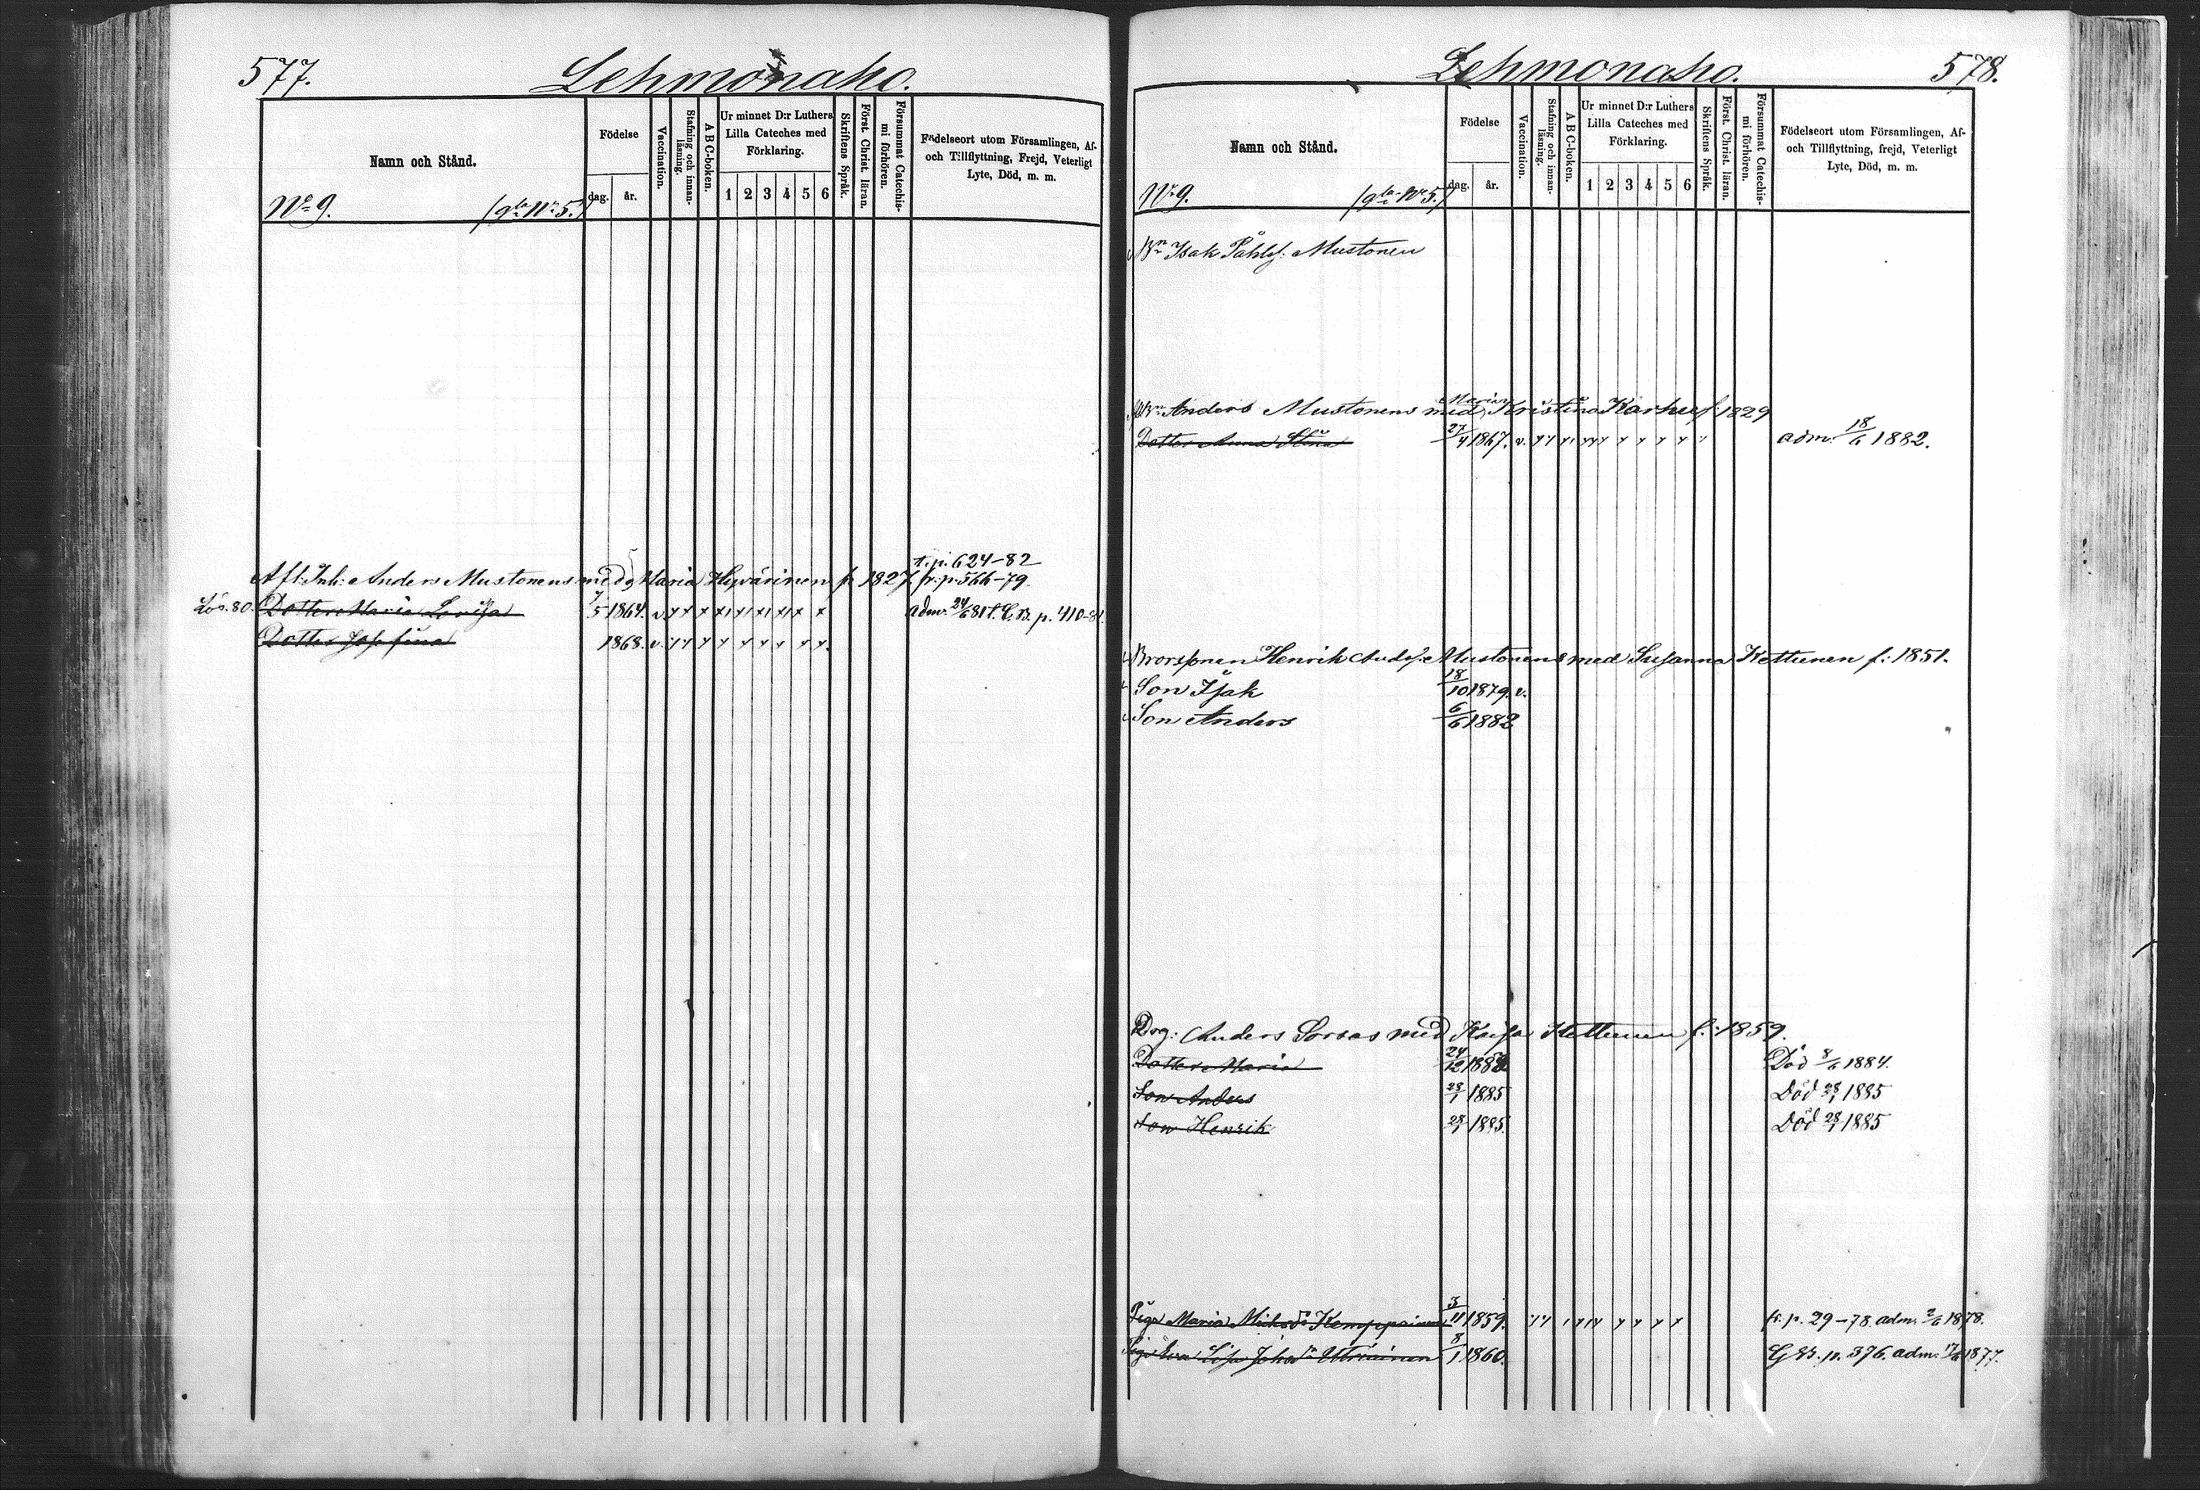 577.
Lehmonaho.
Namn och Stånd.
Födelse
dag.
år.
Vaccination.
Stafning och innan-
läsning.
A B C-boken.
Ur minnet D:r Luthers
Lilla Cateches med
Förklaring.
1 2 3 4 5 6
Skriftens Språk.
Först. Christ. läran.
Försummat Catechis-
mi förhören.
Födelseort utom Församlingen, Af-
och Tillflyttning, Frejd, Veterligt
Lyte, Död, m. m.
No 9.
(gla No 5.)
t. p. 624-82
Afl: Inh: Anders Mustonens med Maria Hyvärinen f. 1827. fr. p. 566-79.
Lös. 80. Dotter Maria Lovisa 7/5 1864. v. adm. 24/6 81 t. C. B. p. 410-81.
Dotter Josefina 1868. v.
Lehmonaho.
578.
Namn och Stånd.
Födelse
dag.
år.
Vaccination.
Stafning och innan-
läsning.
A B C-boken.
Ur minnet D:r Luthers
Lilla Cateches med
Förklaring.
1 2 3 4 5 6
Skriftens Språk.
Först. Christ. läran.
Försummat Catechis-
mi förhören.
Födelseort utom Församlingen, Af-
och Tillflyttning, frejd, Veterligt
Lyte, Död, m. m.
No 9.
(gla No 5.)
Bn Isak Påhls: Mustonen
Maria
Anders Mustonens med Kristina Karhu f: 1829
Dotter Anna Stina 27/4 1867. v. adm. 18/6 1882.
Brorsonen Henrik Ands: Mustonens med Susanna Kettunen f: 1851.
Son Isak 18/10 1879. v.
Son Anders 6/6 1882
Drg: Anders Sorsas med Kaisa Kettunen f: 1859.
Dotter Maria 24/12 1882 Död 8/6 1884.
Son Anders 28/1 1885 Död 28/1 1885
Son Henrik 28/1 1885. Död 28/1 1885
Pig. Maria Michsdr Kemppainen 3/11 1859. fr. p. 29-78. adm. 2/6 1878.
Pig. Eva Lisa Johsdr Utriainen 8/1 1860. G. B. p. 376. adm. 17/6 1877.